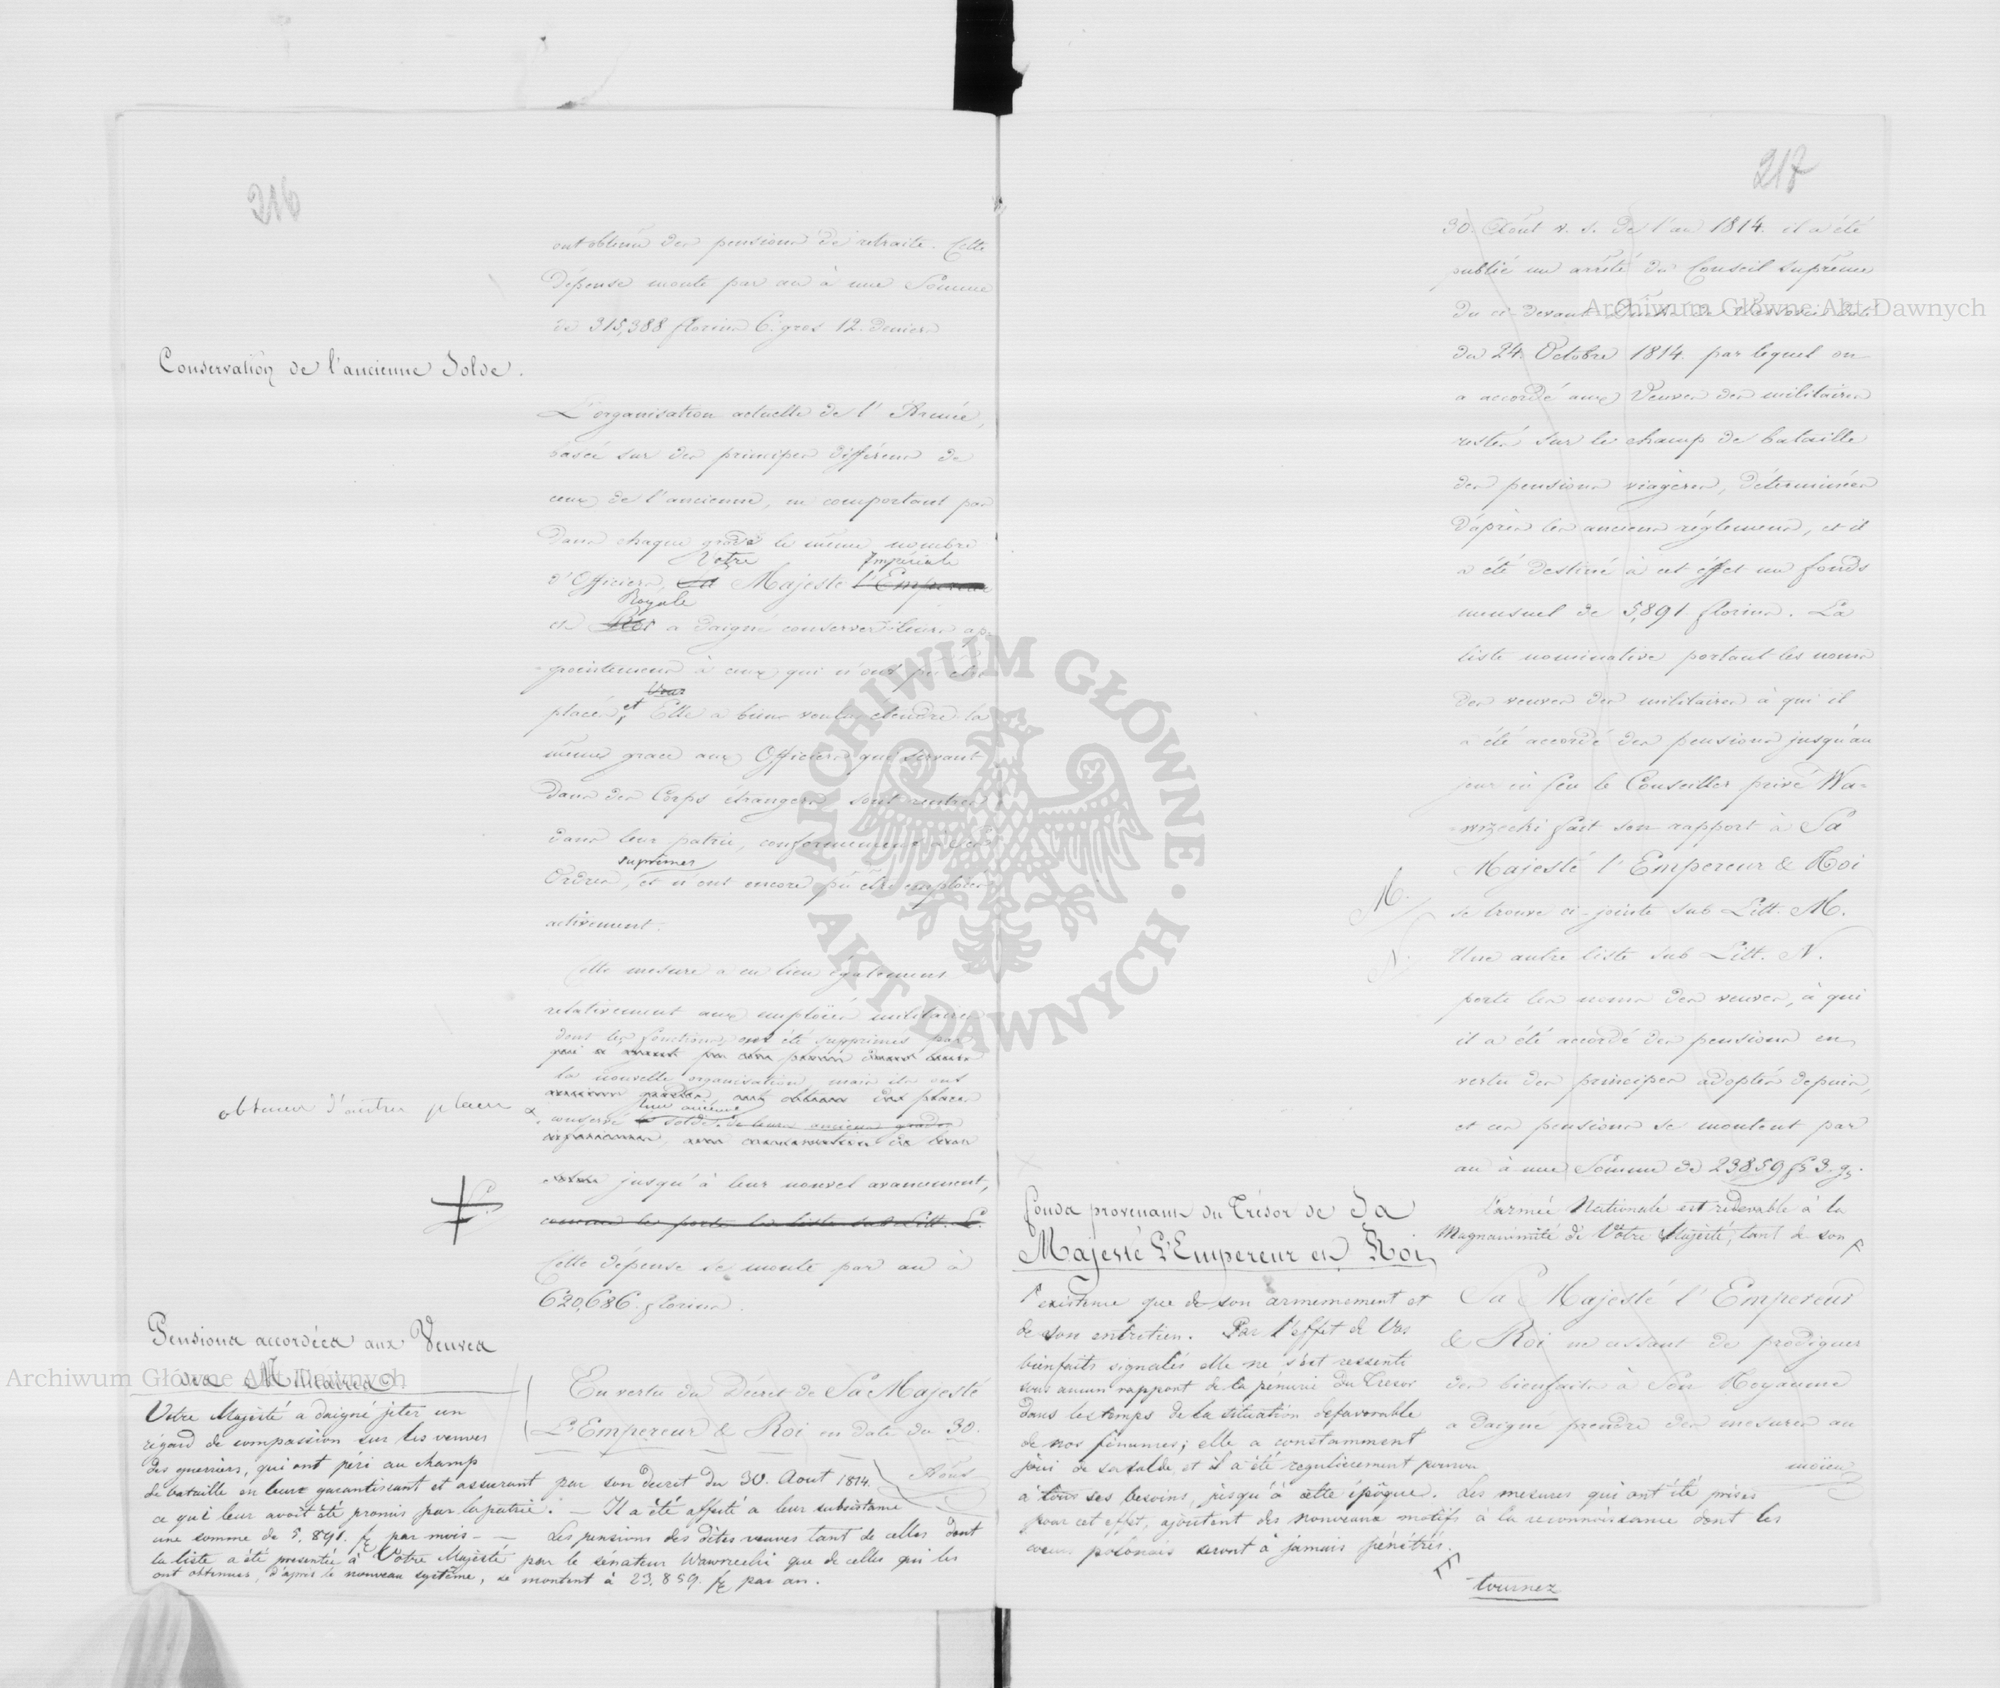 216
ont obtenu des pensions de retraite. Cette
Dépense monte par an à une Somme
de 315,388 florins 6. gros 12. deniers
Conservation de l'ancienne Solde.
L'organisation actuelle de l'Armée,
basée sur des principes différens de
ceux de l'ancienne, ne comportant pas
dans chaque grade le même nombre
Votre Impériale
d'Officiers, Sa Majesté l'Empereur
Royale
et Roi a daigné conserver leurs ap-
-pointemens à ceux qui n'ont pu être
placés, et Elle a bien voulu étendre la
même grace aux Officiers qui servant
dans des Corps étrangers sont rentrés
dans leur patrie, conformément à
suprêmes
Ordres, et n'ont encore pû être employés
activement.
Cette mesure a eu lieu également
relativement aux employés militaires
dont les fonctions ont été supprimés par
la nouvelle organisation, mais ils ont
obtenu d'autres places
leur ancienne
conservé la solde de leurs anciens grades
jusqu'à leur nouvel avancement,
comme les porte la liste sub Litt. L.
Cette dépense se monte par an à
620,686. florins.
Pensions accordées aux Veuves
des Militaires.
En vertu du Décret de Sa Majesté
L'Empereur & Roi en date du 30.
Août
Votre Majesté a daigné jeter un
régard de compassion sur les veuves
des guerriers, qui ont peri au champ
de bataille en leur garantissant et assurant par son decret du 30. Aout 1814.
ce qui leur avoit été promis par la patrie. — Il a été affecté a leur subsistance
une somme de 5,891. fl par mois — — Les pensions des dites veuves tant de celles dont
la liste a été presentée à Votre Majesté par le senateur Wawrzecki que de celles qui les
ont obtenues, d'après le nouveau système, se montent à 23,859. fl par an.
217
30. Août v. s. de l'an 1814. il a été
publié un arrêté du Conseil suprême
du ci-devant Duché de Varsovie daté
du 24. Octobre 1814. par lequel on
a accordé aux Veuves des militaires
restés sur le champ de bataille
des pensions viagères, déterminées
d'après les anciens réglemens, et il
a été destiné à cet effet un fonds
mensuel de 5,891 florins. La
liste nominative portant les noms
des veuves des militaires à qui il
a été accordé des pensions jusqu'au
jour où feu le Conseiller privé Wa-
-wrzecki fait son rapport à Sa
Majesté l'Empereur & Roi
M.
se trouve ci-jointe sub Litt. M.
N.
Une autre liste sub Litt. N.
porte les noms des veuves, à qui
il a été accordé des pensions en
vertu des principes adoptés depuis,
et ces pensions se montent par
an à une Somme de 23,859 fl 3. gs.
Fonds provenans du Trésor de Sa
Majesté L'Empereur et Roi
L'armée Nationale est redevable à la
Magnanimité de Votre Majesté, tant de son
l'existence que de son armemement et
de son entretien. Par l'effet de Vos
bienfaits signalés elle ne s'est ressenti
sous aucun rapport de la pénurie du Tresor
dans les temps de la situation défavorable
de nos finances; elle a constamment
joui de sa solde, et il a été regulièrement pourvu
à tous ses besoins, jusqu'à cette époque. Les mesures qui ont été prises
pour cet effet, ajoutent des nouveaux motifs à la reconnoissance dont les
coeurs polonais seront à jamais pénétrés.
Sa Majesté l'Empereur
& Roi ne cessant de prodiguer
des bienfaits à Son Royaume
a daigné prendre des mesures au
moïen
tournez
Archiwum Główne Akt Dawnych
Archiwum Główne Akt Dawnych
ARCHIWUM GŁÓWNE AKT DAWNYCH